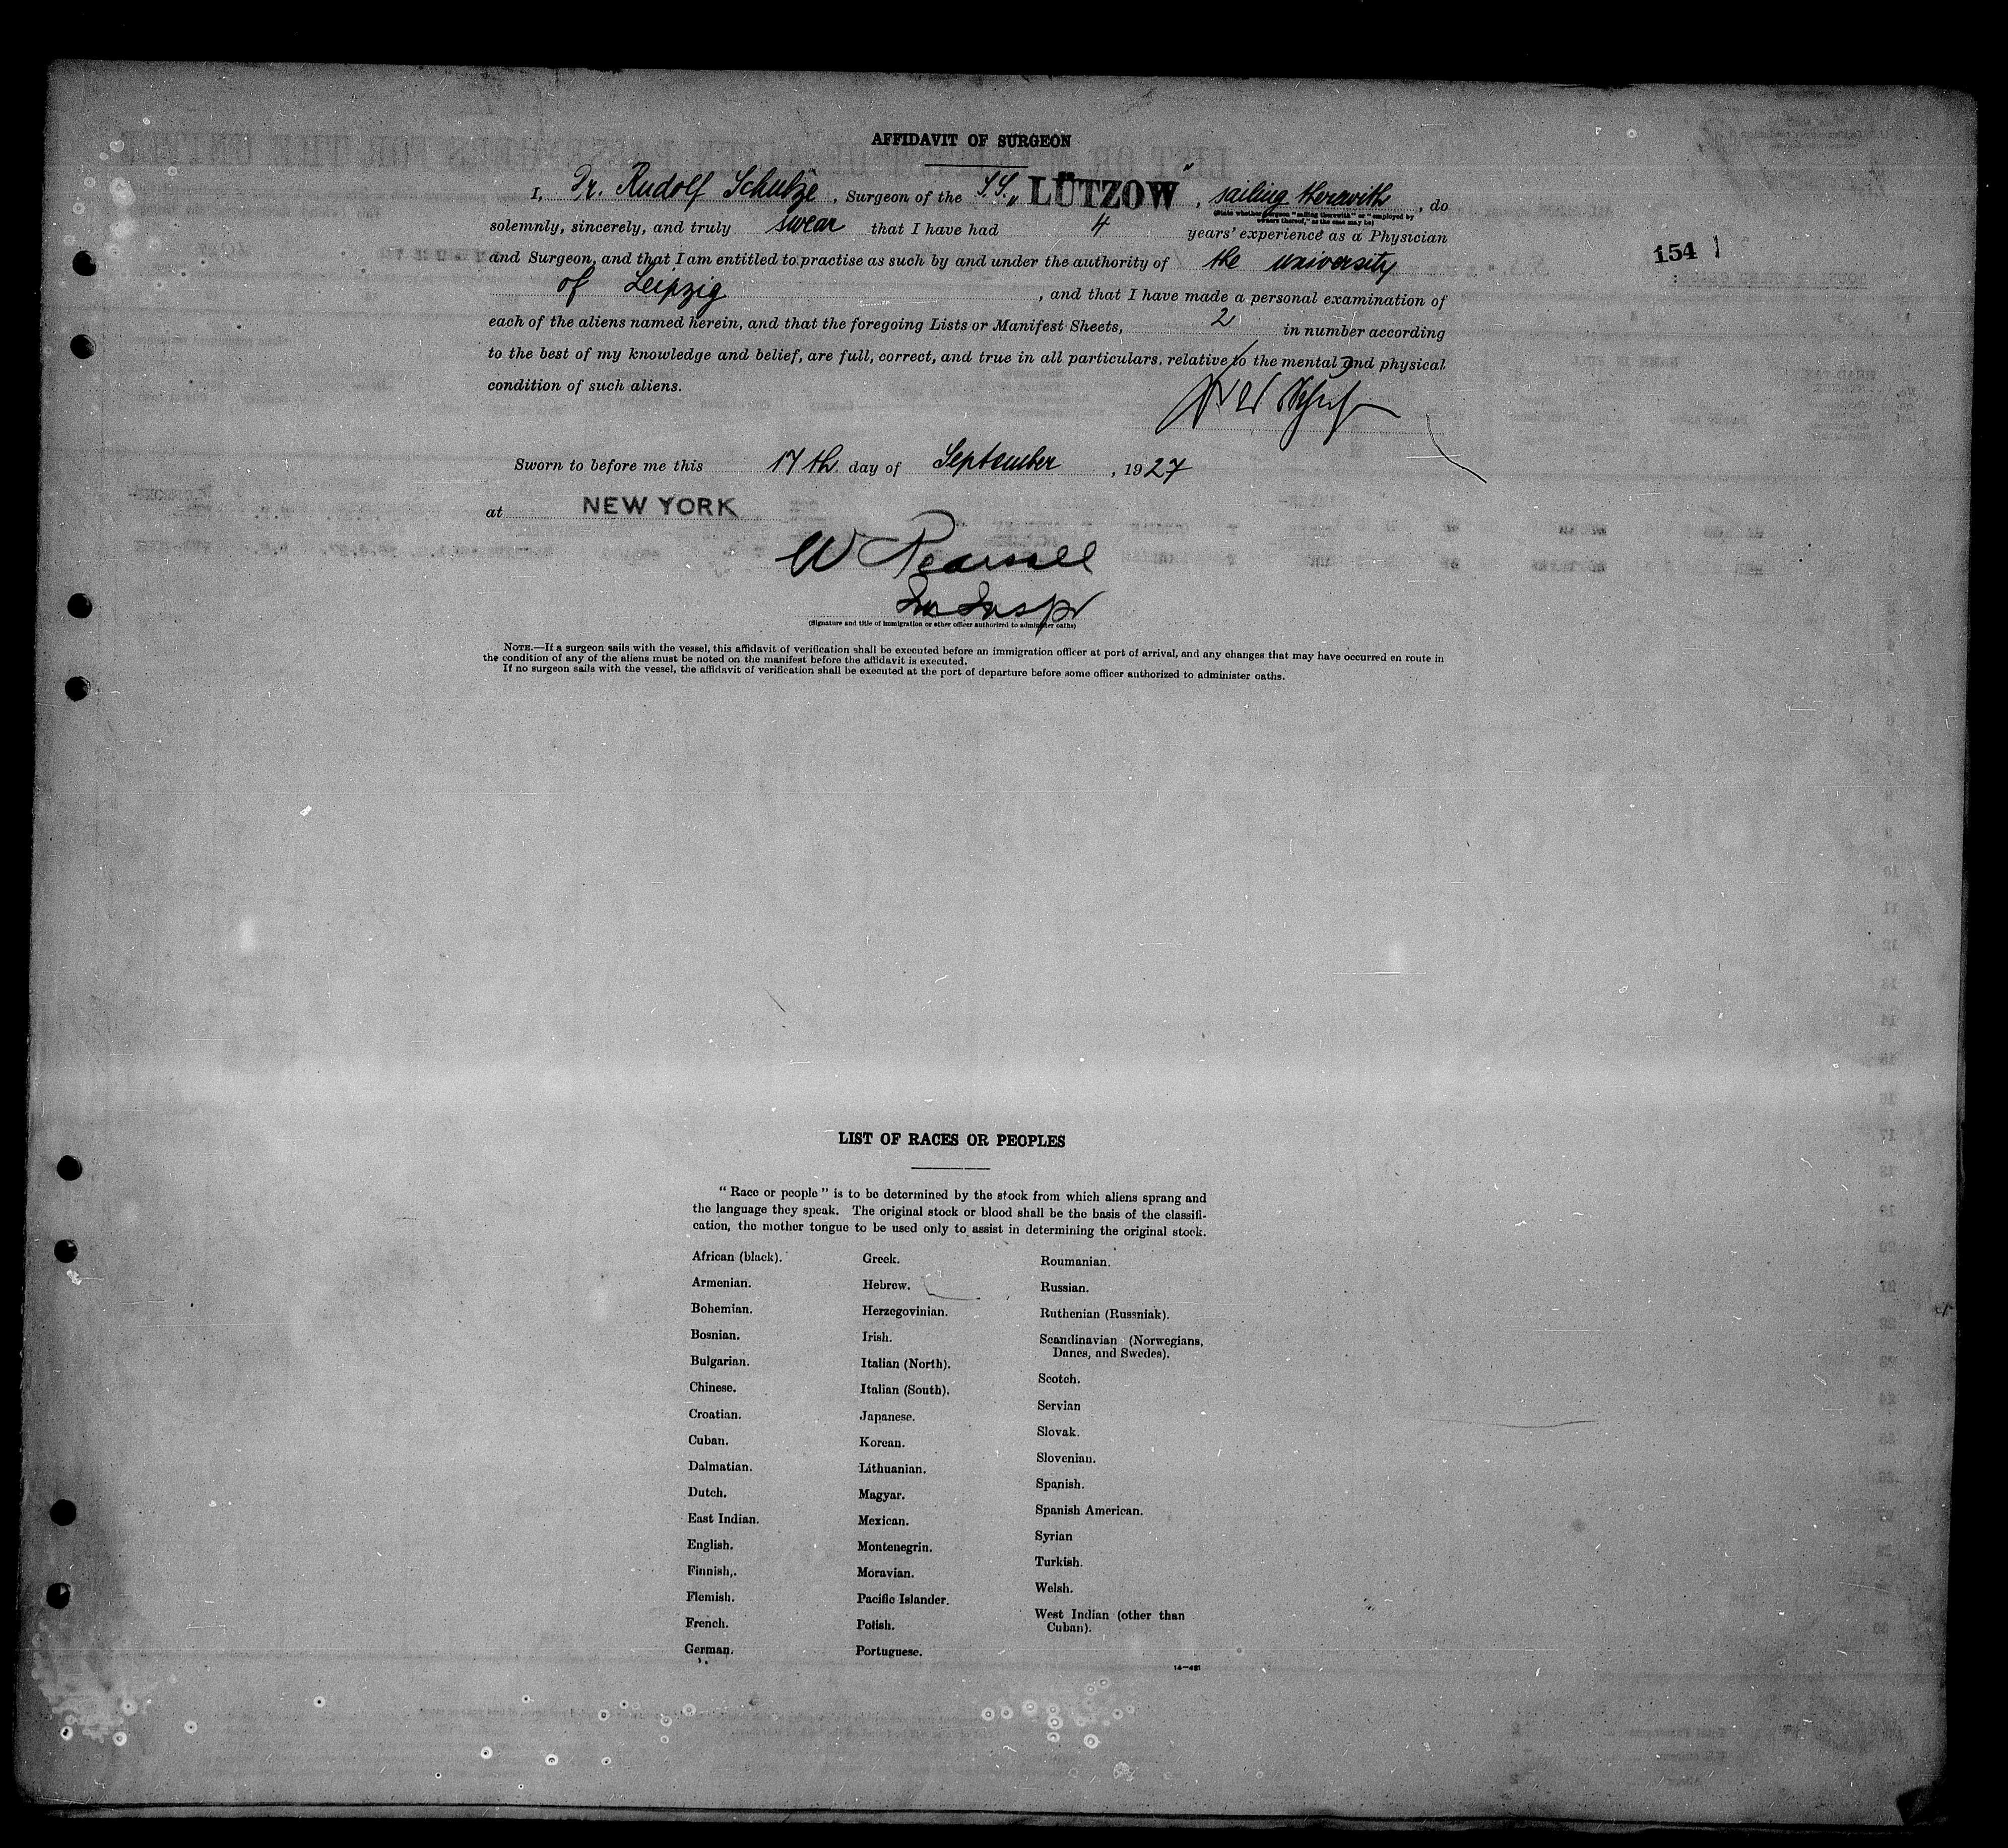 AFFIDAVIT OF SURGEON
I, Dr. Rudolf Schulze, Surgeon of the S.S. „LÜTZOW", sailing therewith, do
(State whether surgeon "sailing therewith" or "employed by
owners thereof," as the case may be)
solemnly, sincerely, and truly swear that I have had 4 years' experience as a Physician
and Surgeon, and that I am entitled to practise as such by and under the authority of the university
of Leipzig, and that I have made a personal examination of
each of the aliens named herein, and that the foregoing Lists or Manifest Sheets, 2 in number according
to the best of my knowledge and belief, are full, correct, and true in all particulars, relative to the mental and physical
condition of such aliens.
154
Sworn to before me this 17th day of September, 1927
at NEW YORK
W Pearsall
Im Inspr
(Signature and title of immigration or other officer authorized to administer oaths)
NOTE.—If a surgeon sails with the vessel, this affidavit of verification shall be executed before an immigration officer at port of arrival, and any changes that may have occurred en route in
the condition of any of the aliens must be noted on the manifest before the affidavit is executed.
If no surgeon sails with the vessel, the affidavit of verification shall be executed at the port of departure before some officer authorized to administer oaths.
LIST OF RACES OR PEOPLES
"Race or people" is to be determined by the stock from which aliens sprang and
the language they speak. The original stock or blood shall be the basis of the classifi-
cation, the mother tongue to be used only to assist in determining the original stock.
African (black).
Armenian.
Bohemian.
Bosnian.
Bulgarian.
Chinese.
Croatian.
Cuban.
Dalmatian.
Dutch.
East Indian.
English.
Finnish.
Flemish.
French.
German.
Greek.
Hebrew.
Herzegovinian.
Irish.
Italian (North).
Italian (South).
Japanese.
Korean.
Lithuanian.
Magyar.
Mexican.
Montenegrin.
Moravian.
Pacific Islander.
Polish.
Portuguese.
Roumanian.
Russian.
Ruthenian (Russniak).
Scandinavian (Norwegians,
Danes, and Swedes).
Scotch.
Servian
Slovak.
Slovenian.
Spanish.
Spanish American.
Syrian
Turkish.
Welsh.
West Indian (other than
Cuban).
14—481